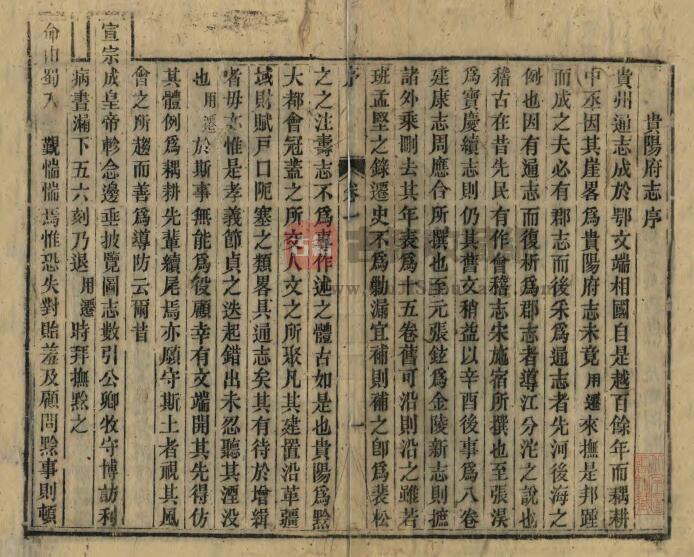 貴陽府志序
貴州通志成於鄂文端相國自是越百餘年而耦耕
中丞因其崖畧為貴陽府志未竟用遷來撫是邦踵
而成之夫必有郡志而後采為通志者先河後海之
例也因有通志而復析為郡志者導江分沱之說也
稽古在昔先民有作會稽志宋施宿所撰也至張淏
為寶慶續志則仍其舊文稍益以辛酉後事為八卷
建康志周應合所撰也至元張鉉為金陵新志則摭
諸外乘刪去其年表為五卷舊可沿則沿之雖若
班孟堅之錄遷史不為勦漏宜補則補之即為裴松
序 卷一 一
之之注壽志不為專作述之體古如是也貴陽為黔
大都會冠蓋之所交人文之所聚凡其建置沿革疆
域財賦戶口阨塞之類畧具通志矣其有待於增緝
者毋亦惟是孝義節貞之迭起錯出未忍聽其湮沒
也用遷於斯事無能為役顧幸有文端開其先得仿
其體例為耦耕先輩續尾焉亦願守斯土者視其風
會之所趨而善為導防云爾昔
宣宗成皇帝軫念邊垂披覽圖志數引公卿牧守博訪利
病晝漏下五六刻乃退用遷時拜撫黔之
命由蜀入覲惴惴焉惟恐失對貽羞及顧問黔事則頓